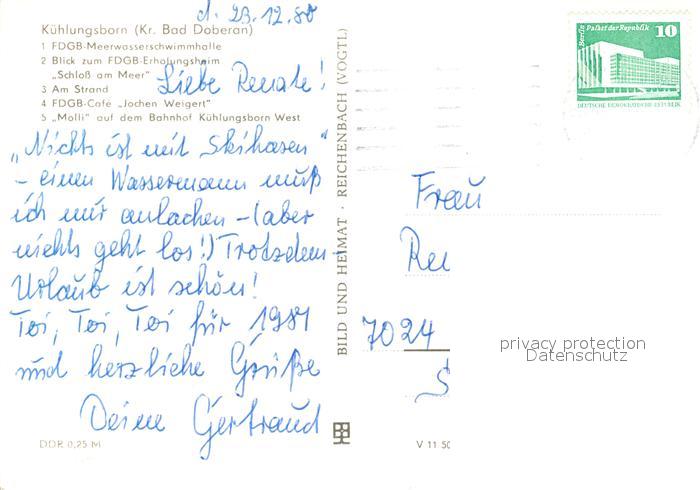 d. 23.12.80
Kühlungsborn (Kr. Bad Doberan)
1 FDGB-Meerwasserschwimmhalle
2 Blick zum FDGB-Erholungsheim
„Schloß am Meer"
3 Am Strand
4 FDGB-Café „Jochen Weigert"
5 „Molli" auf dem Bahnhof Kühlungsborn West
Liebe Renate!
„Nichts ist mit Skihasen"
- einen Wassermann muß
ich mir anlachen - (aber
nichts geht los!) Trotzdem -
Urlaub ist schön!
Toi, Toi, Toi für 1981
und herzliche Grüße
Deine Gertraud
DDR 0,25 M
BILD UND HEIMAT · REICHENBACH (VOGTL)
V 11 50
Berlin Palast der Republik
10
DEUTSCHE DEMOKRATISCHE REPUBLIK
Frau
Ren
7024
S
privacy protection
Datenschutz